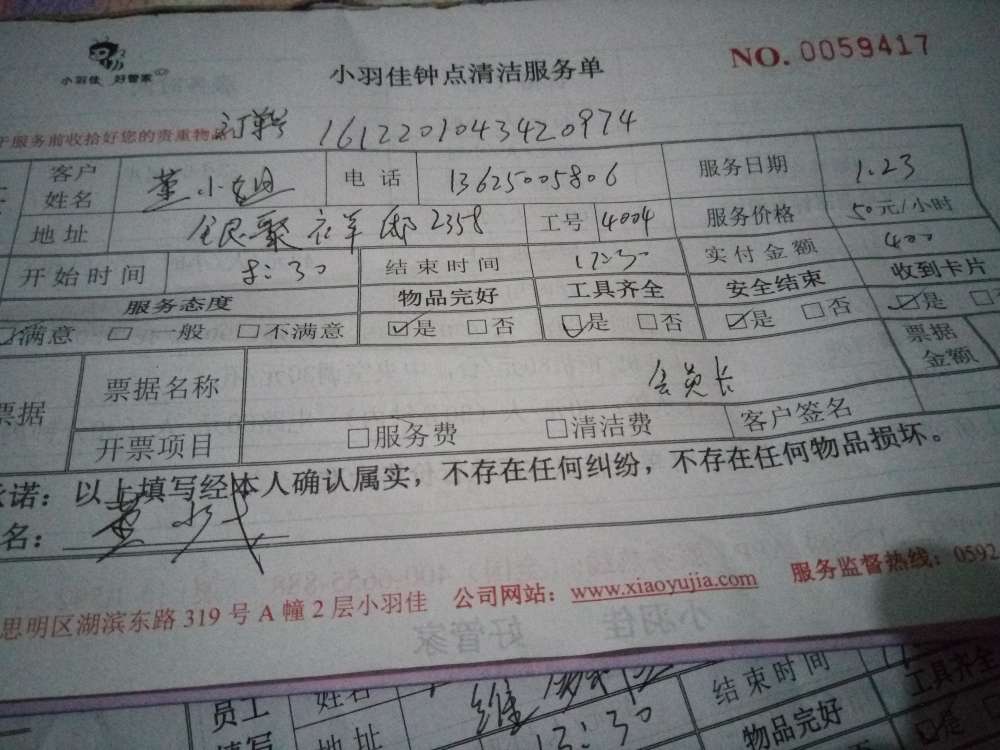 小羽佳 好管家
小羽佳钟点清洁服务单
NO. 0059417
于服务前收拾好您的贵重物品
订单号 1612201043420974
客户姓名 董小姐 电话 13625005806 服务日期 1.23
地址 2358 工号 4004 服务价格 50元/小时
开始时间 8:30 结束时间 17:30 实付金额 400
服务态度 物品完好 工具齐全 安全结束 收到卡片
满意 一般 不满意 是 否 是 否 是 否 是
票据 票据名称 会员长 票据金额
开票项目 服务费 清洁费 客户签名
承诺:以上填写经本人确认属实,不存在任何纠纷,不存在任何物品损坏。
名:
思明区湖滨东路 319 号 A 幢 2 层小羽佳 公司网站:www.xiaoyujia.com 服务监督热线:0592
员工填写 姓名 结束时间 工具齐全
地址 13:30 物品完好 是